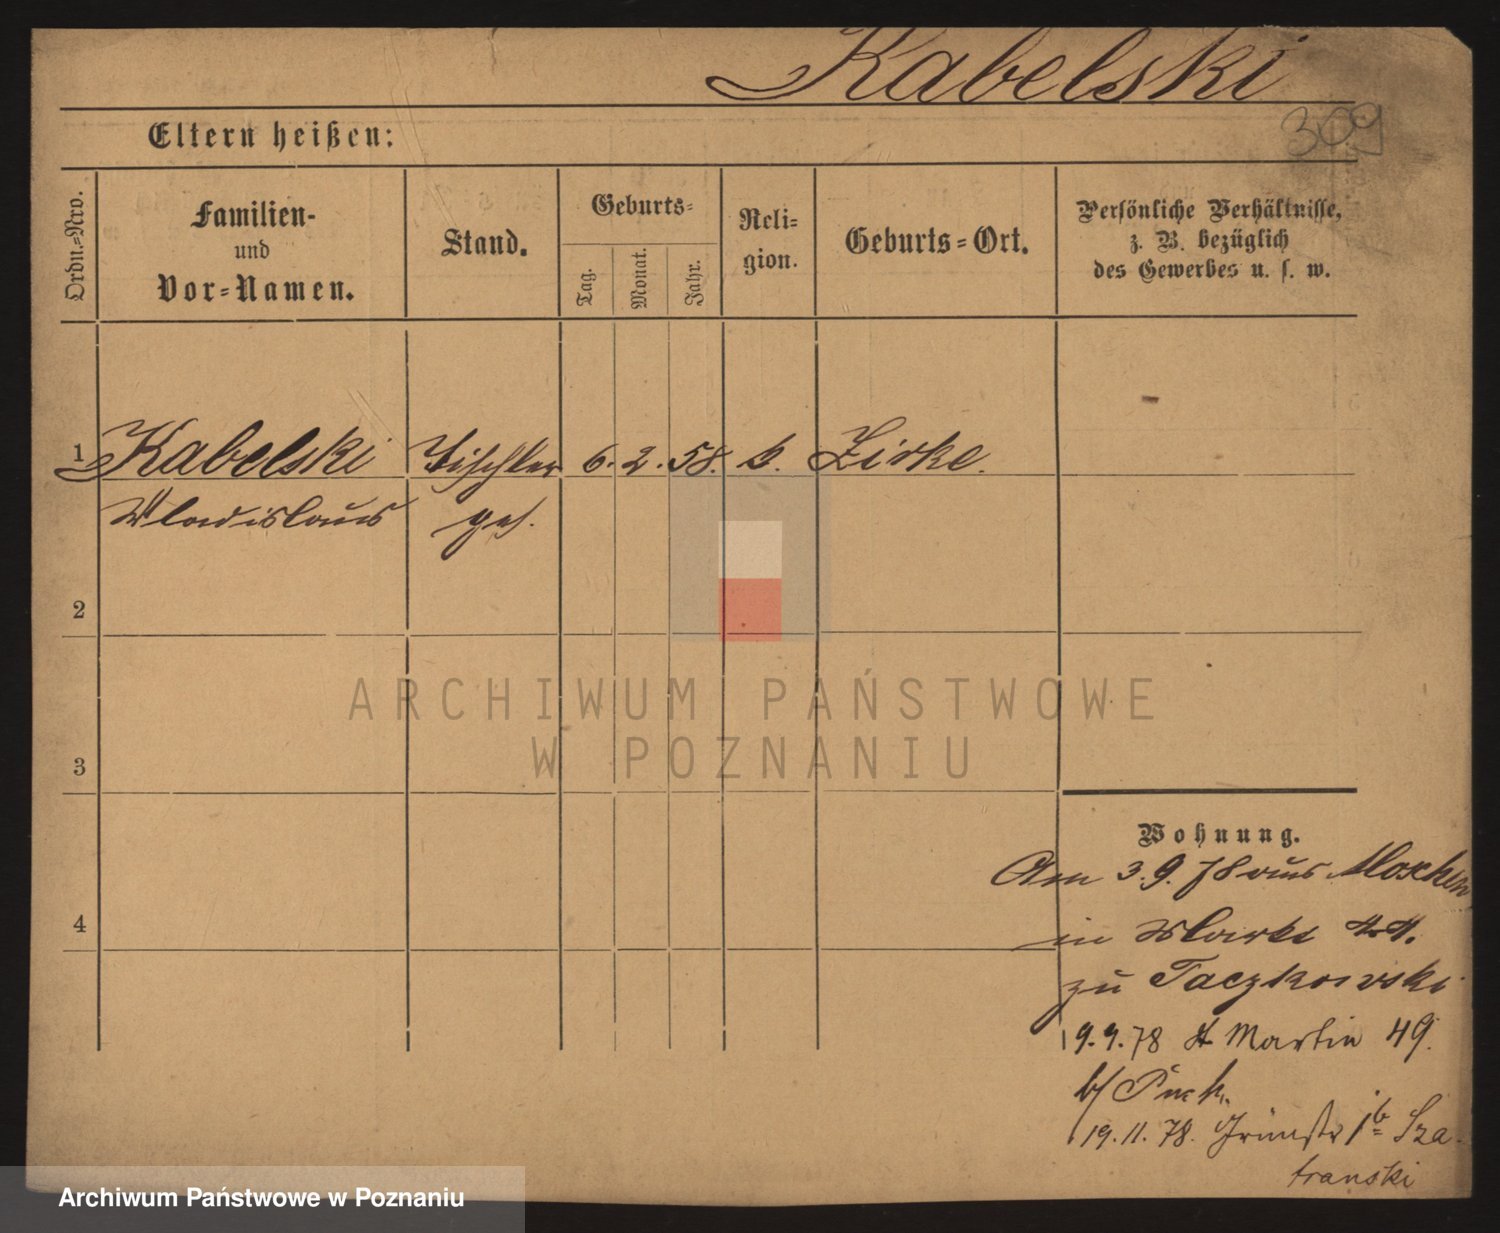 Kabelski
309
Eltern heißen:
Ordn.=Nro.
Familien-
und
Vor=Namen.
Stand.
Geburts=
Tag.
Monat.
Jahr.
Reli=
gion.
Geburts=Ort.
Persönliche Verhältnisse,
z. B. bezüglich
des Gewerbes u. s. w.
1 Kabelski Tischler 6. 2. 58. Zirke.
Wladislaus ges.
2
3
4
Wohnung.
Am 3.9.78 aus
in Markt 44.
zu Taczkowski
9.9.78 St Martin 49.
b/
19.11.78. Grünstr 1b Sza-
transki
ARCHIWUM PAŃSTWOWE
W POZNANIU
Archiwum Państwowe w Poznaniu